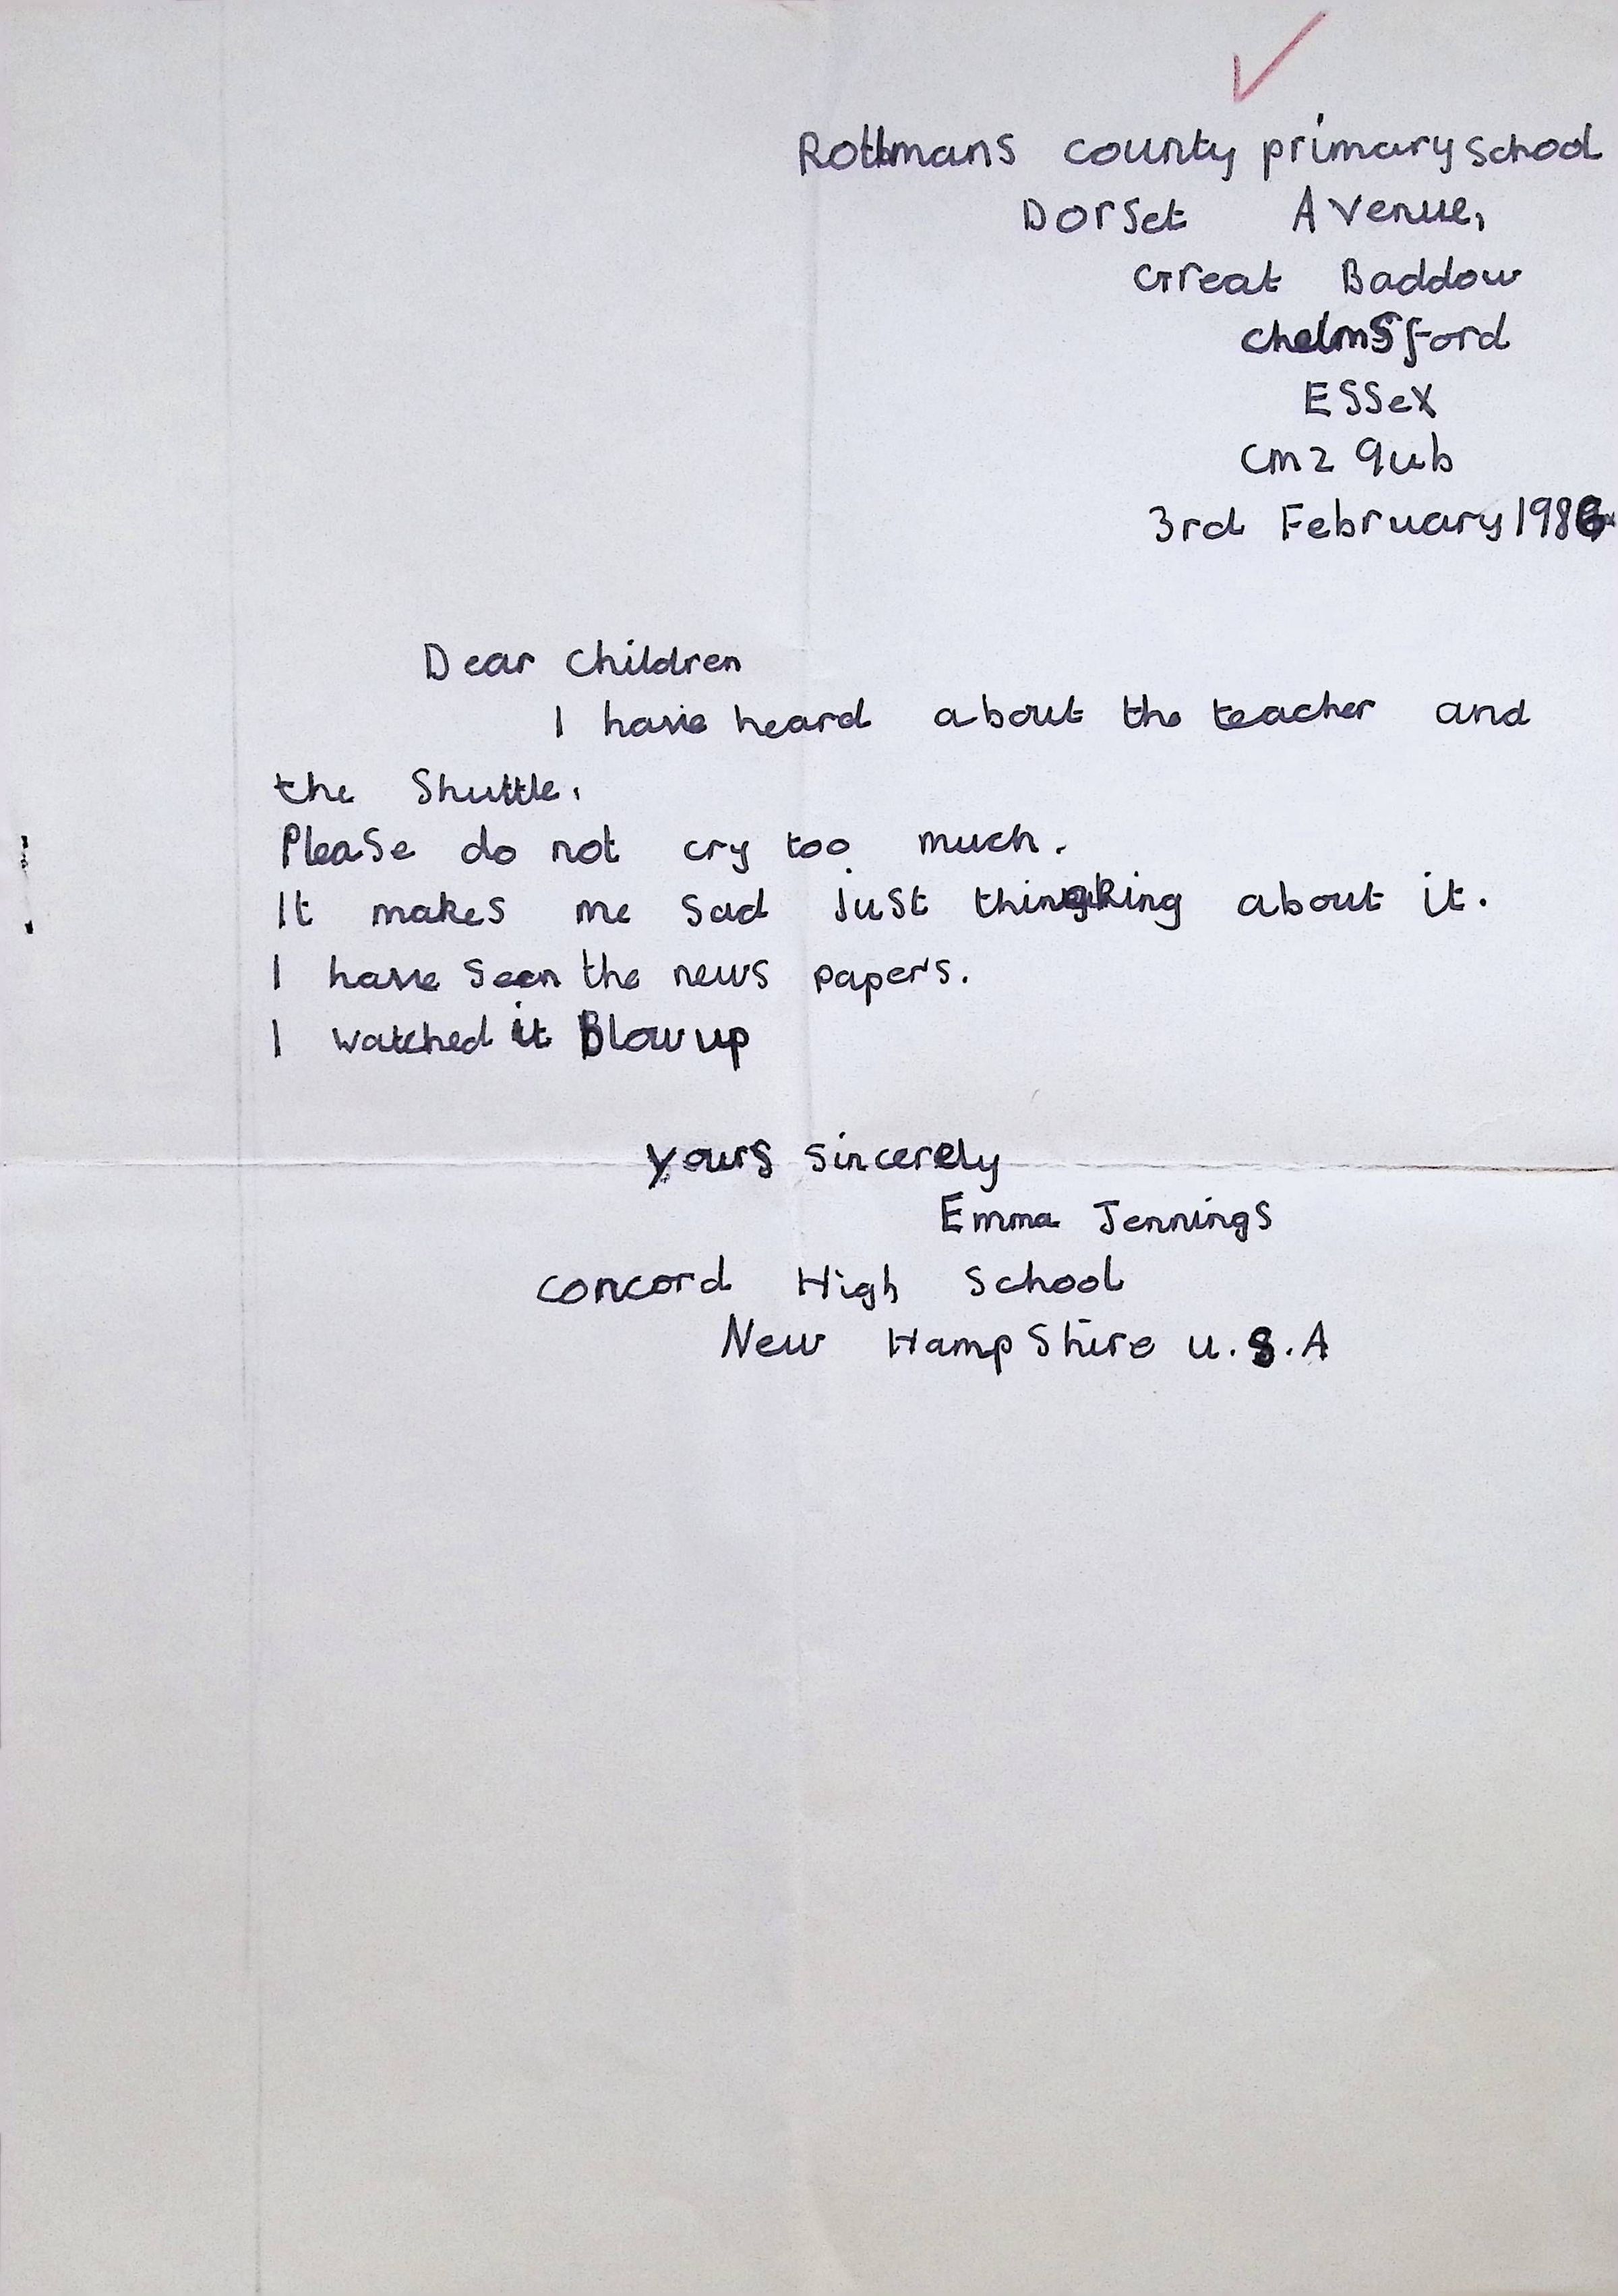 Rothmans county primary school
Dorset Avenue,
Great Baddow
chelmsford
ESSex
cm2 9ub
3rd February 1986
Dear Children
I have heard about the teacher and
the Shuttle.
Please do not cry too much.
It makes me sad just thinking about it.
I have seen the news papers.
I watched it Blow up
yours sincerely
Emma Jennings
concord High School
New HampShire U.S.A